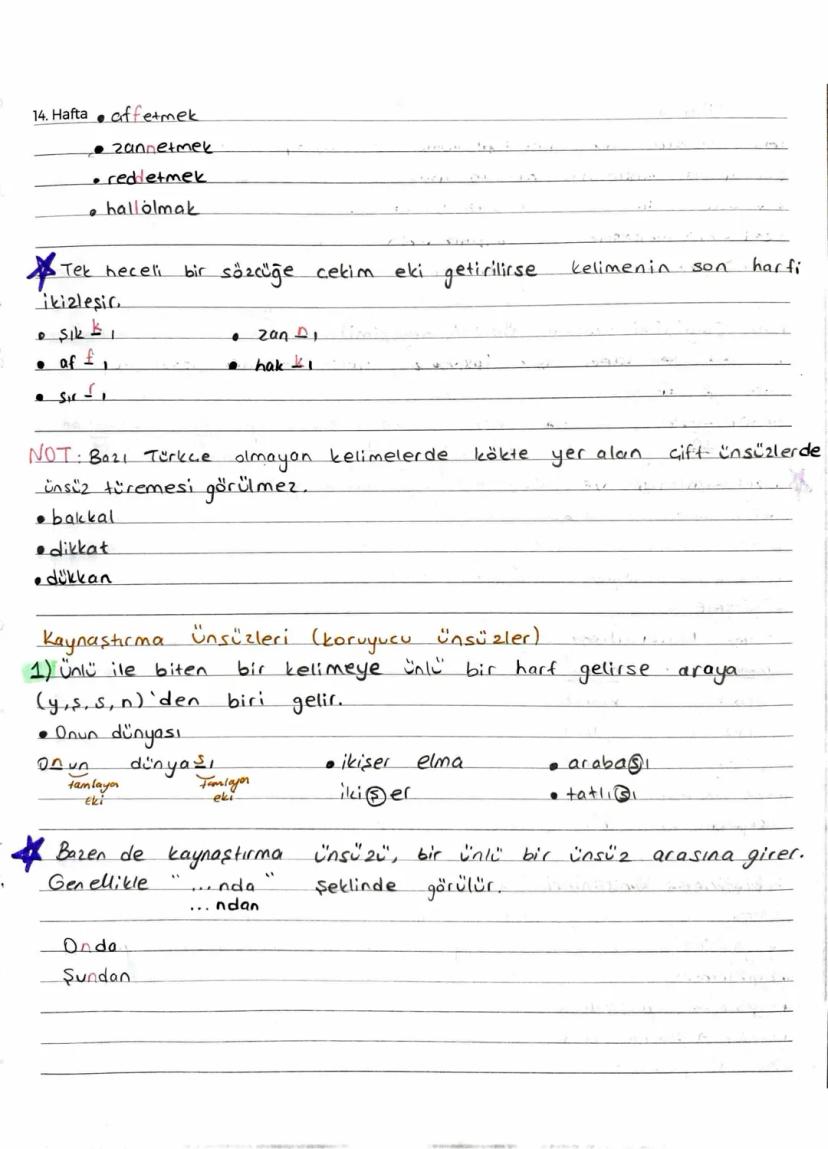 14. Hafta • affetmek
• zannetmek
• reddetmek
• hallolmak
Tek heceli bir sözcüğe çekim eki getirilirse kelimenin son harfi
ikizleşir.
• şık k ı • zan n ı
• af f ı • hak k ı
• sır r ı
NOT: Bazı Türkçe olmayan kelimelerde kökte yer alan çift ünsüzlerde
ünsüz türemesi görülmez.
• bakkal
• dikkat
• dükkan
Kaynaştırma Ünsüzleri (koruyucu ünsüzler)
1) Ünlü ile biten bir kelimeye ünlü bir harf gelirse araya
(y,ş,s,n)'den biri gelir.
• Onun dünyası
Onun dünyası • ikişer elma • arabası
tamlayan eki Tamlayan eki iki ş er • tatlısı
Bazen de kaynaştırma ünsüzü, bir ünlü bir ünsüz arasına girer.
Genellikle "...nda" şeklinde görülür.
...ndan
Onda
Şundan